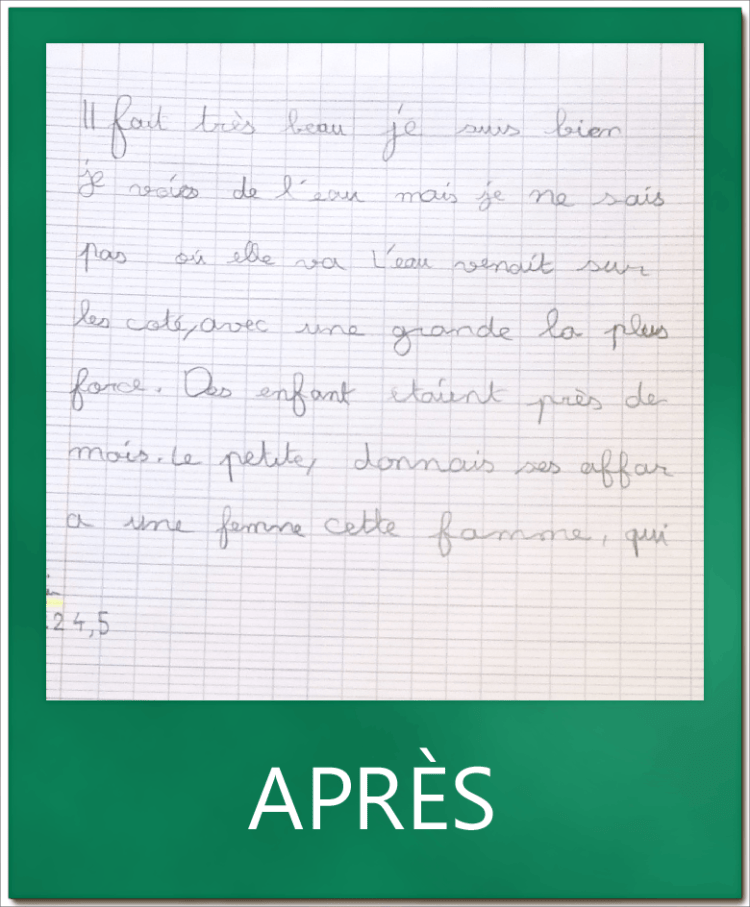 Il fait très beau je suis bien
je voies de l'eau mais je ne sais
pas où elle va L'eau venait sur
les coté, avec une grande la plus
force. Des enfant étaient près de
mois. Le petite, donnais ses affar
a une femme cette famme, qui
24,5
APRÈS